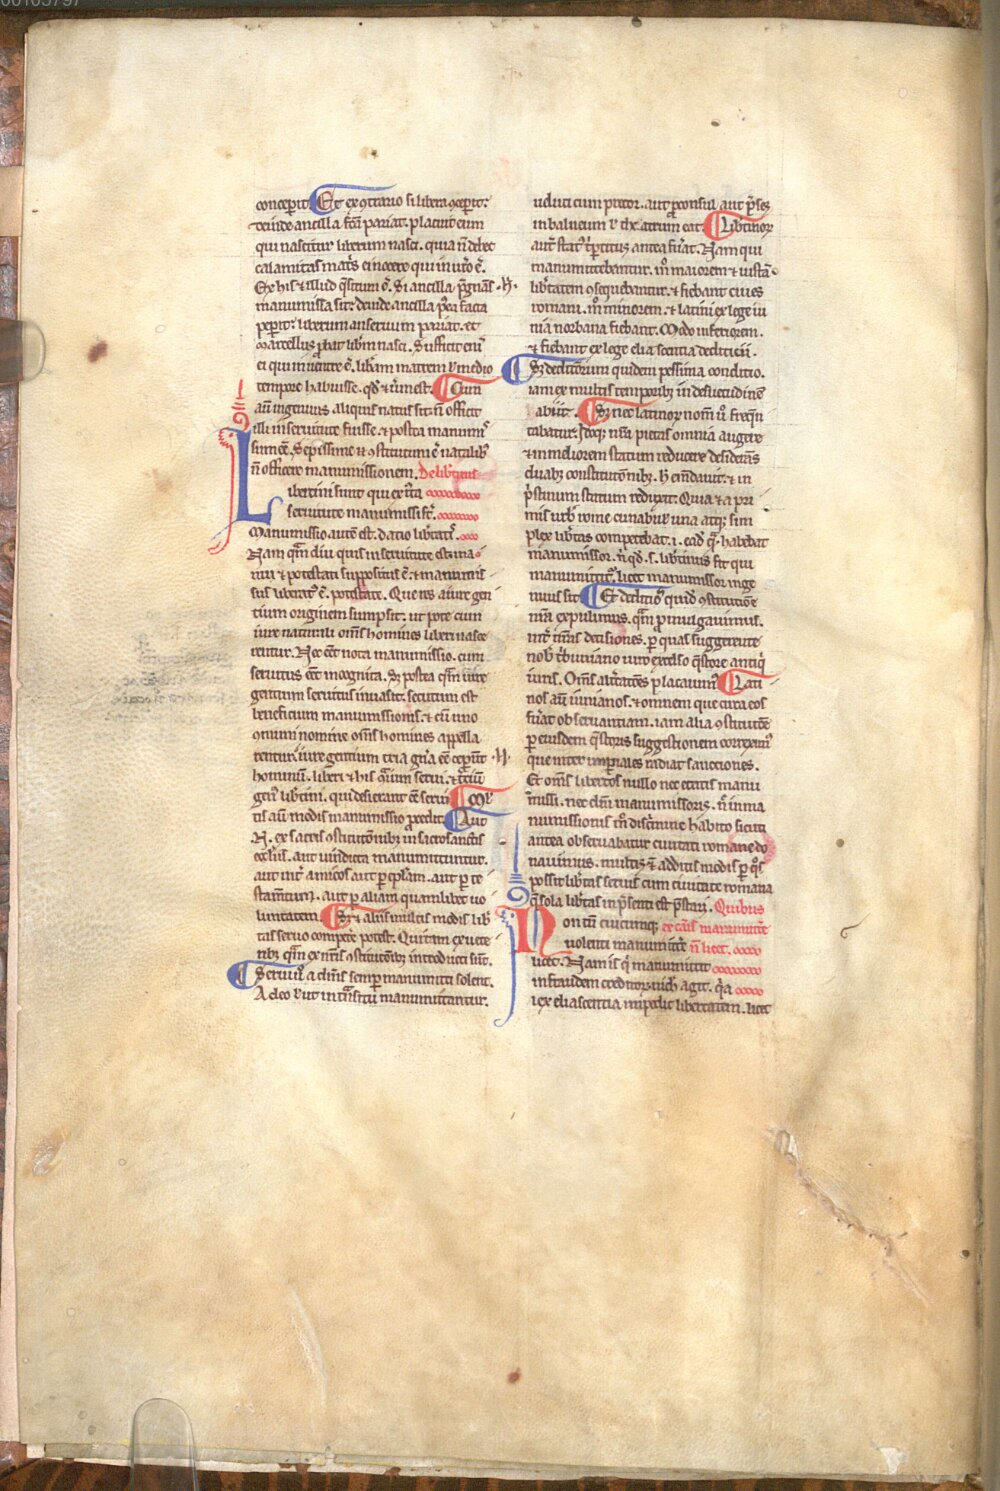 concepit. Et ex ɔtrario si libera ɔceperit:
deinde ancilla fc̄a pariat. placuit eum
qui nascitur liberum nasci. quia n̄ debet
calamitas mat̄s ei nocere qui in utō ē.
Ex his & illud q̄situm ē. Si ancilla p̄gnās
manumissa sit: deinde ancilla p̄ea facta
pepit: liberum an seruum pariat. et
marcellus ꝓbat libm̄ nasci. Sufficit eni
ei qui in uentre ē. libam matrem ł medio
tempore habuisse. qd̄ & uerū est. Cum
aū ingenuus aliquis natus sit. n̄ officit
illi in seruitute fuisse. & postea manumi
sum eē. Sepissime .n. ɔstitutum ē natalibꝰ
n̄ officere manumissionem. De libtinis
Libertini sunt qui ex iusta
seruitute manumissi st̄.
Manumissio autē est. datio libtatis.
Nam qm̄ diu quis in seruitute est ma
nui & potestati suppositus ē: & manumis
sus liberatr̄ ē. potestate. Que res a iure gen
tium originem sumpsit. ut pote cum
iure naturali om̄s homines liberi nasce
rentur. Nec eēt nota manumissio. cum
seruitus eēt incognita. S; postea qm̄ iure
gentium seruitus inuasit. secutum est
beneficium manumissionis. & cū uno
cōmuni nomine om̄s homines appella
rentur: iure gentium tria gn̄a eē ceperūt
hominū. liberi & his ɔ̄rium serui. & tertiū
gen̄ libtini. qui desierant eē serui. Mul
tis aū modis manumissio ꝓcedit. Aut
.n. ex sacris ɔstitutōnibꝫ in sacrosanctis
ecclīis. aut uindicta manumittuntur.
aut int̄ amicos aut ꝑ epl̄am. aut ꝑ te
stam̄tum. aut ꝑ aliam quamlibet uo
luntatem. S; & aliis multis modis lib
tas seruo compete potest. Qui tam ex uete
ribꝫ qm̄ ex nr̄is ɔstitutōibꝫ introducti sūt.
Serui uo a dn̄is semp manumitti solent.
Adeo ł ut in transitu manumittantur.
uel uti cum pretor. aut ꝓconsul aut p̄ses
in balneum ł theatrum eat. Libtinoꝝ
aut̄ stat tꝑtitus antea fuat. Nam qui
manumittebantur. m̄ maiorem & iustā
libtatem ɔsequebantur. & fiebant ciues
romani. m̄ minorem. & latini ex lege iu
nia norbana fiebant. Modo inferiorem.
& fiebant ex lege elia sentia dediticii.
S; dediticiorum quidem pessima conditio.
iam ex multis temporibꝫ in desuetudinē
abiit. S; nec latinoꝝ nom̄ ū freqn̄
tabatur. Ideoqꝫ nr̄a pietas omnia augere
& in meliorem statum reducere desiderās
duabꝫ constitutōnibꝫ. h̄ emdauit. & in
pristinum statum reduxit. Quia & a pri
mis urbis rome cunabulis una atqꝫ sim
plex libtas competebat. i. eadē q̄ habebat
manumissor. n̄ qd̄. s. libtinus sit qui
manumittitur. licet manumissor inge
nuus sit. Et deditiōs quidē ɔstitutiōē
nr̄am expulimus. qm̄ promulgauimus.
int̄ nr̄as decisiones. ꝑ quas suggerente
nob̄ tribuniano uiro excelso q̄store antiq
iuris. Om̄s alt̄catōes placauimꝰ. Lati
nos aū iunianos. & omnem que circa eos
fuat obseruantiam. iam alia ɔstitutōe
ꝑ eiusdem q̄storis suggestionem correximꝰ
que inter imperiales radiat sanctiones.
Et om̄s libertos nullo nec etatis manu
missi. nec dn̄i manumissoris. n̄ in ma
numissionis m̄ discrimine habito sicuti
antea obseruabatur ciuitati romane do
nauimus. multis ē additis modis ꝑ qs
possit libtas seruis cum ciuitate romana
q̄ sola libtas in p̄senti est p̄stari. Quibus
Non tn̄ cuicumqꝫ ex cāis manumittē
uolenti manumitte n̄ licet.
licet. Nam is q̄ manumittit
in fraudem creditoꝝ nich̄ agit. q̄a
lex elia sentia impedit libertatem. licet